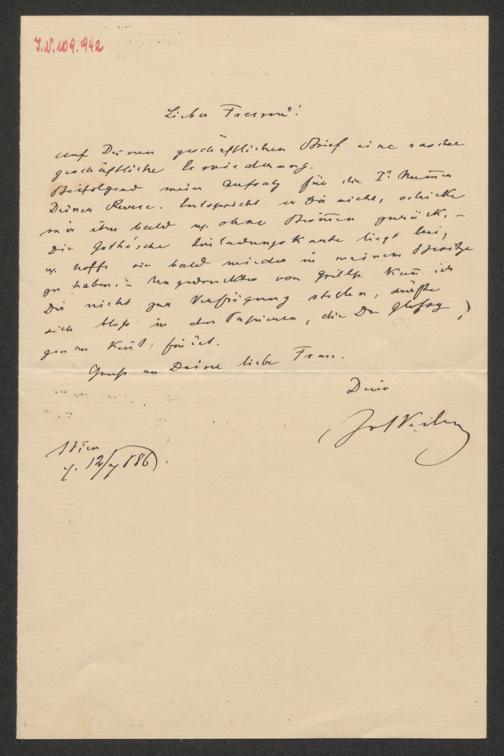 I.N. 109.942
Lieber Freund!
Auf Deinen geschäftlichen Brief eine rasche
geschäftliche Erwiderung.
Beifolgend mein Aufsatz für die I. Numer
Deiner Revue. Entspricht er Dir nicht, schicke
mir ihn bald u. ohne zurück, –
Die Gothe'sche Einladungskarte liegt bei,
u. hoffe sie bald wieder in meinem Besitze
zu haben. – Ungedrucktes von Grillp. kann ich
Dir nicht zur Verfügung stellen, dürfte
sich bloß in den Papieren, die Dr Glossy
genau kennt,
Gruß an Deine liebe Frau.
Dein
Jos Weilen
Wien
12/ 886.